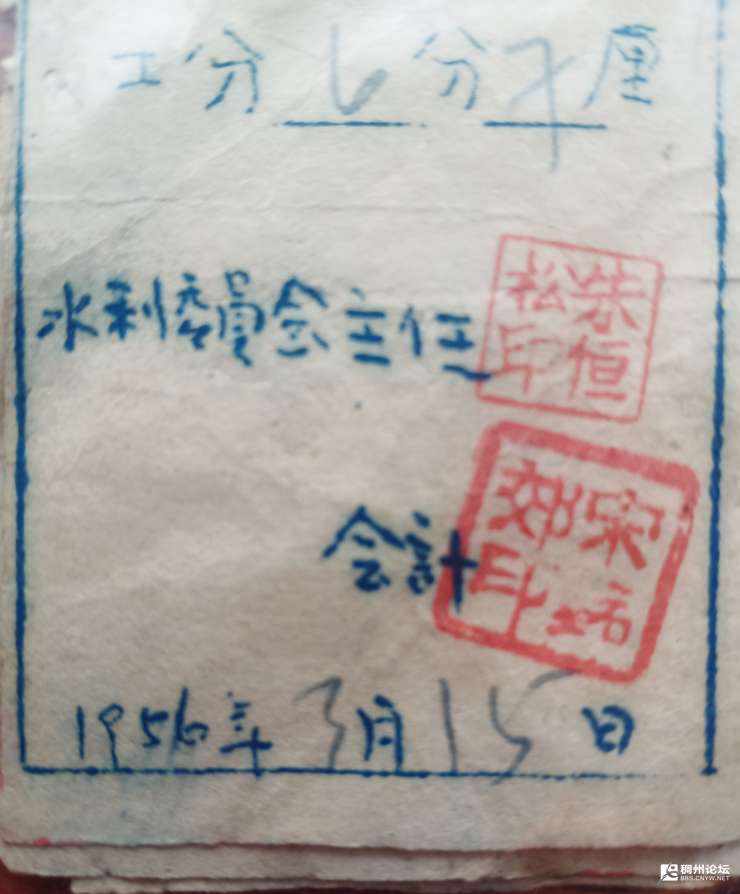 工分 6 分 7 厘
水利委員会主任
朱恒
松印
会計
宋
印
1956年3月15日
稠州论坛
BBS.CNYW.NET